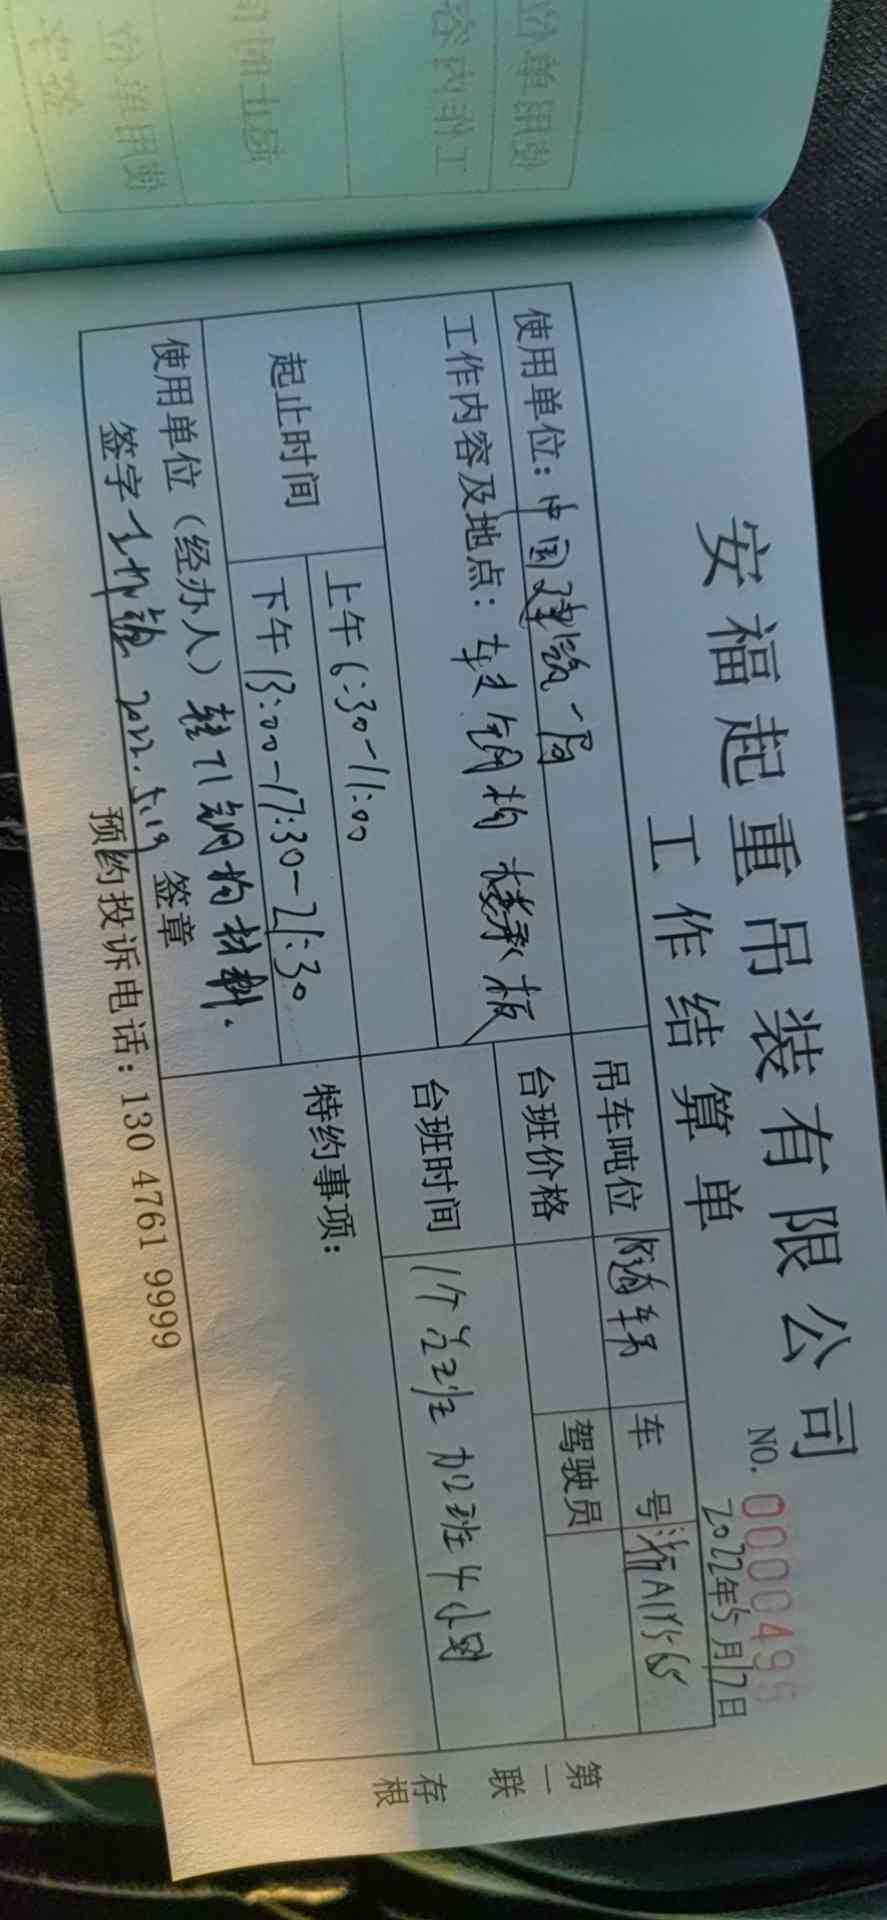 安福起重吊装有限公司
工作结算单
NO. 0000495
2022年5月17日
使用单位：中国建筑一局
吊车吨位 随车吊
车号 浙A
工作内容及地点：钢构 楼承板
台班价格
驾驶员
台班时间 1个台班 加班4小时
起止时间
上午 6:30-11:00
下午 13:00-17:30-21:30
特约事项：
使用单位（经办人）钢构材料.
签字 2022.5.19 签章
预约投诉电话：130 4761 9999
第一联 存根